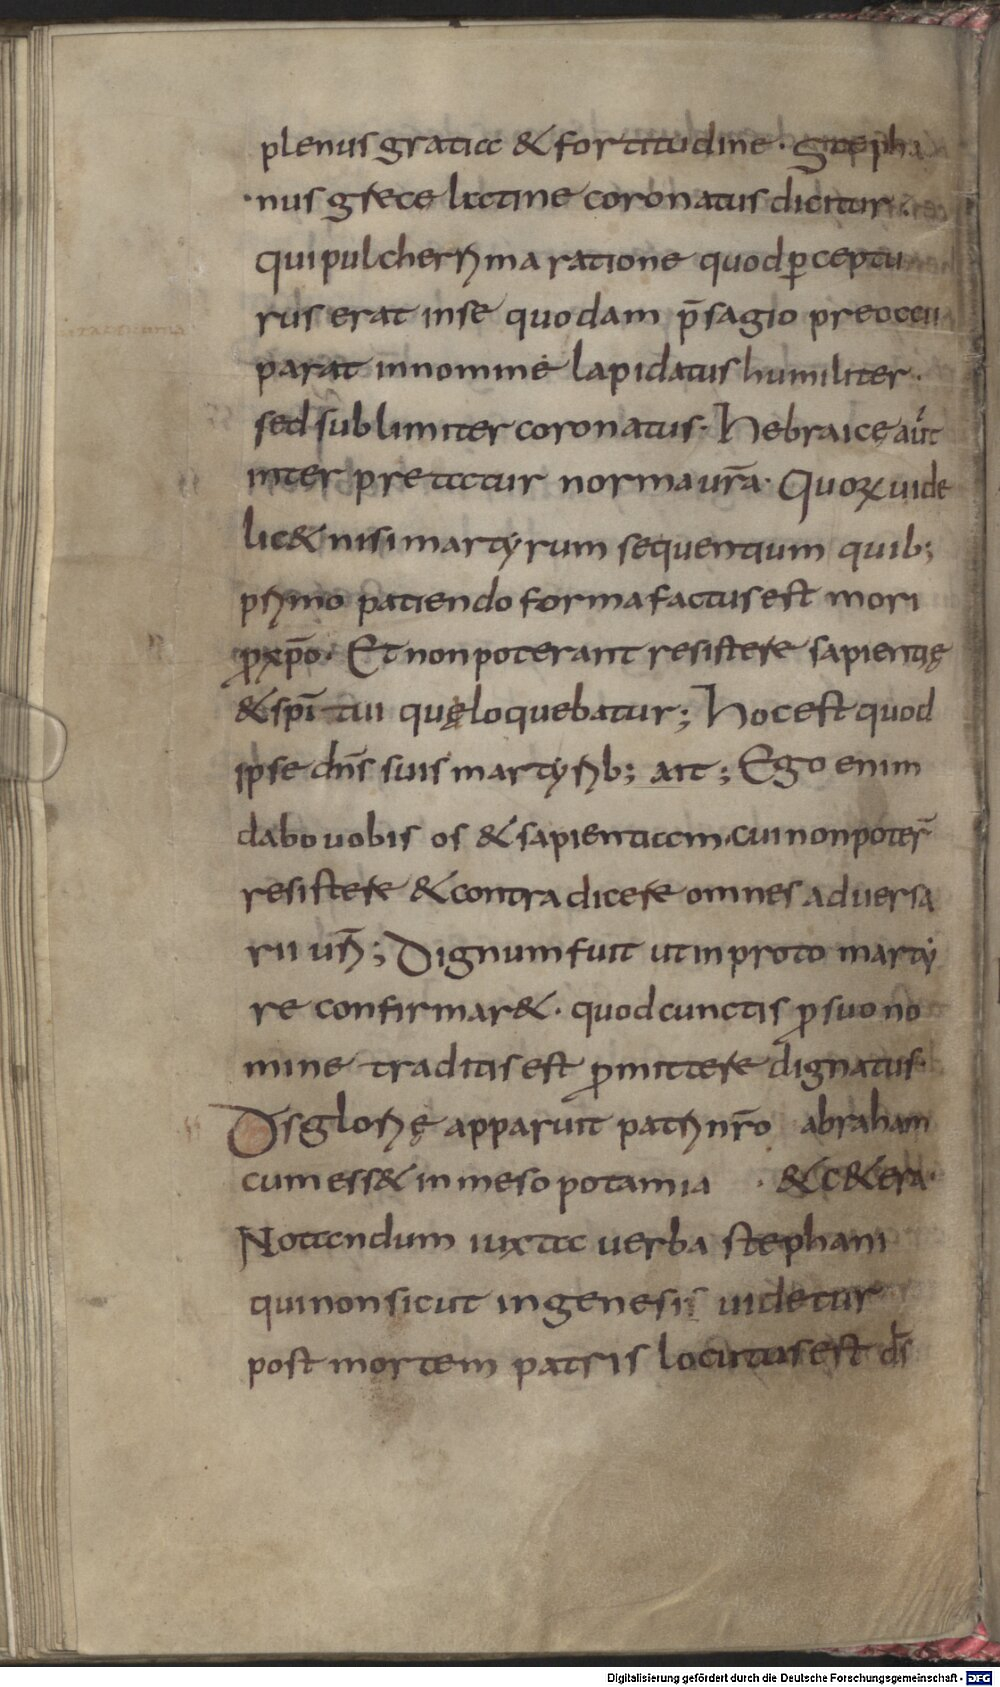 plenus gratia & fortitudine · Stepha
nus grece latine coronatus dicitur ·
qui pulcherrima ratione quod ꝑceptu
rus erat in se quodam p̄sagio preoccu
parat in nomine lapidatus humiliter ·
sed sublimiter coronatus · Hebraicę aut̄
interpretatur norma ur̄a · Quoꝝ uide
lic& nisi martyrum sequentium quib;
primo patiendo forma factus est mori
ꝓ xp̄o · Et non poterant resistere sapientię
& sp̄itui quę loquebatur ; Hoc est quod
ipse dn̄s suis martyrib; ait ; Ego enim
dabo uobis os & sapientiam · cui non poter̄
resistere & contradicere omnes aduersa
rii ur̄i ; Dignum fuit ut in proto marty
re confirmar& · quod cunctis ꝓ suo no
mine traditis est ꝓmittere dignatus ·
Ds glorię apparuit patri nr̄o abraham
cum ess& in mesopotamia · &c&era ·
Notandum iuxta uerba stephani
qui non sicut in genesi uidetur
post mortem patris locutus est ds̄
Digitalisierung gefördert durch die Deutsche Forschungsgemeinschaft - DFG